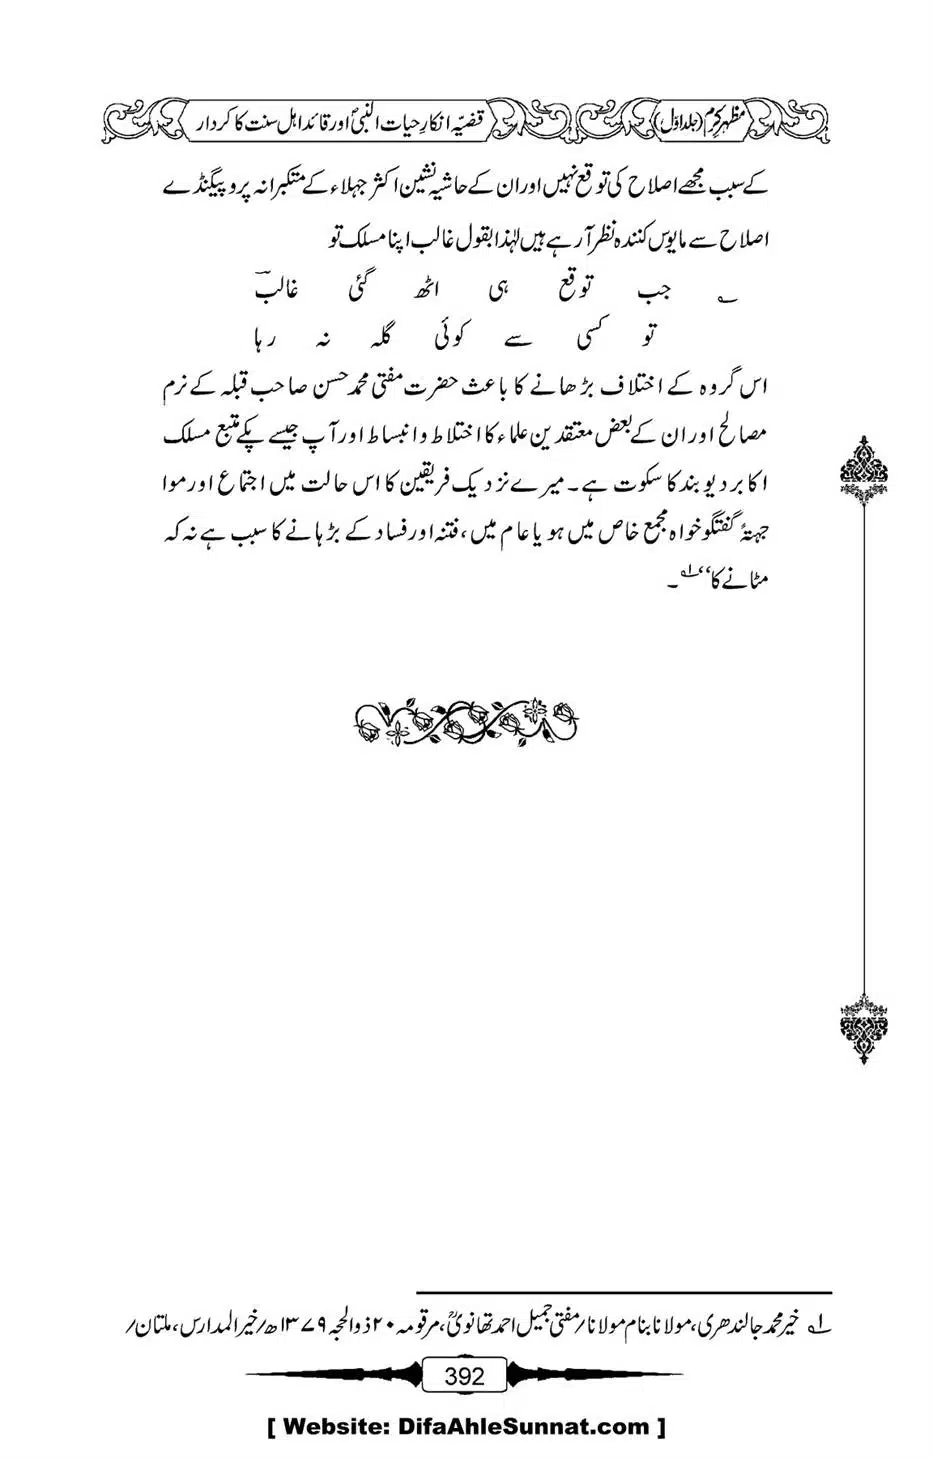 مظہرِکرم (جلداوّل)
قضیّہ انکارِحیات النبیؐ اور قائد اہل سنت کا کردار
کے سبب مجھے اصلاح کی توقع نہیں اور ان کے حاشیہ نشین اکثر جہلاء کے متکبرانہ پروپیگنڈے
اصلاح سے مایوس کنندہ نظر آرہے ہیں لہٰذا بقول غالب اپنا مسلک تو
؎ جب توقع ہی اٹھ گئی غالبؔ
تو کسی سے کوئی گلہ نہ رہا
اس گروہ کے اختلاف بڑھانے کا باعث حضرت مفتی محمد حسن صاحب قبلہ کے نرم
مصالح اور ان کے بعض معتقدین علماء کا اختلاط و انبساط اور آپ جیسے پکے متبع مسلک
اکابر دیوبند کا سکوت ہے۔ میرے نزدیک فریقین کا اس حالت میں اجتماع اور موا
جہتۂ گفتگو خواہ مجمع خاص میں ہو یا عام میں، فتنہ اور فساد کے بڑہانے کا سبب ہے نہ کہ
مٹانے کا‘‘ ۱؎۔
۱؎ خیر محمد جالندھری، مولانا بنام مولانا/مفتی جمیل احمد تھانویؒ، مرقومہ ۲۰ ذوالحجہ ۱۳۷۹ھ/خیرالمدارس، ملتان/
392
[ Website: DifaAhleSunnat.com ]